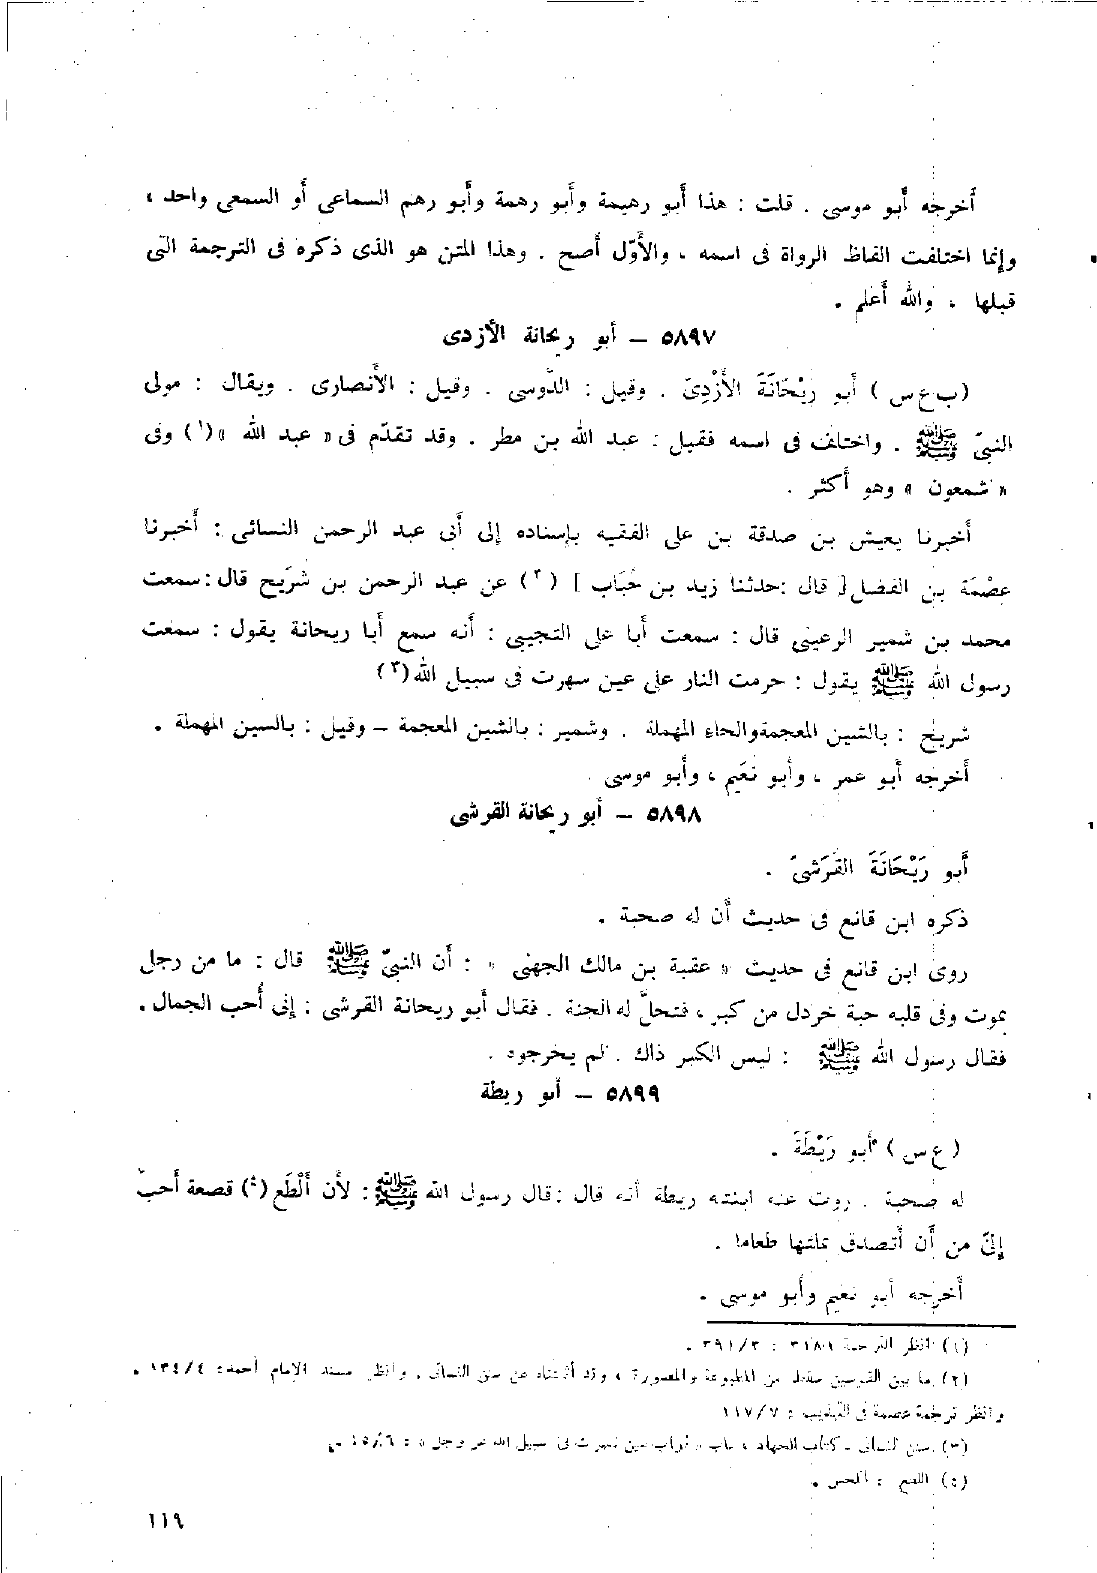 أخرجه أبو موسى . قلت : هذا أبو رهيمة وأبو رهمة وأبو رهم السماعى أو السمعى واحد ،
وإنما اختلفت الفاظ الرواة فى اسمه ، والأوّل أصح . وهذا المتن هو الذى ذكره فى الترجمة التى
قبلها ، والله أعلم .
٥٨٩٧ – أبو ريحانة الأزدى
( ب ع س ) أبو رَيْحَانَةَ الأَزْدِىّ . وقيل : الدَّوسى . وقيل : الأنصارى . ويقال : مولى
النبىّ ﷺ . واختلف فى اسمه فقيل : عبد الله بن مطر . وقد تقدّم فى « عبد الله » (١) وفى
« شمعون » وهو أكثر .
أخبرنا يعيش بن صدقة بن على الفقيه بإسناده إلى أبى عبد الرحمن النسائى : أخبرنا
عِصْمَة بن الفضل [ قال : حدثنا زيد بن حُبَاب ] (٢) عن عبد الرحمن بن شُرَيح قال : سمعت
محمد بن شمير الرعينى قال : سمعت أبا على التجيبى : أنه سمع أبا ريحانة يقول : سمعت
رسول الله ﷺ يقول : حرمت النار على عين سهرت فى سبيل الله (٣)
شريح : بالشين المعجمة والحاء المهملة . وشمير : بالشين المعجمة – وقيل : بالسين المهملة .
أخرجه أبو عمر ، وأبو نعَيم ، وأبو موسى .
٥٨٩٨ – أبو ريحانة القرشى
أبو رَيْحَانَةَ القُرَشىّ .
ذكره ابن قانع فى حديث أن له صحبة .
روى ابن قانع فى حديث « عقبة بن مالك الجهنى » : أن النبىّ ﷺ قال : ما من رجل
يموت وفى قلبه حبة خردل من كبر ، فتحلّ له الجنة . فقال أبو ريحانة القرشى : إنى أُحب الجمال .
فقال رسول الله ﷺ : ليس الكبر ذاك . لم يخرجوه .
٥٨٩٩ – أبو ريطة
( ع س ) أبو رَيْطَةَ .
له صحبة . روت عنه ابنته ريطة أنه قال : قال رسول الله ﷺ : لأن أَلْطَع (٤) قصعة أحبّ
إلىّ من أن أتصدق بملئها طعاما .
أخرجه أبو نعيم وأبو موسى .
(١) انظر الترجمة ٣١٨١ : ٣٩١/٣ .
(٢) ما بين القوسين سقط من المطبوعة والمصورة ، وقد أثبتناه عن سنن النسائى . وانظر مسند الإمام أحمد : ١٣٤/٤ .
وانظر ترجمة عصمة فى التهذيب : ١١٧/٧
(٣) سنن النسائى – كتاب الجهاد ، باب « ثواب عين سهرت فى سبيل الله عز وجل » : ١٥/٦ .
(٤) اللطع : اللحس .
١١٩